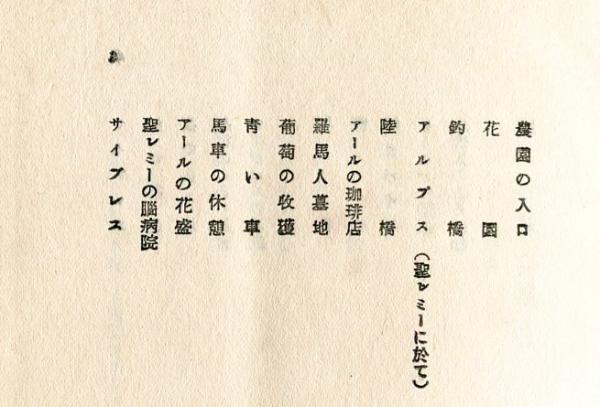 農園の入口
花園
釣橋
アルプス(聖レミーに於て)
陸橋
アールの珈琲店
羅馬人墓地
葡萄の収穫
青い車
馬車の休憩
アールの花盛
聖レミーの脳病院
サイプレス